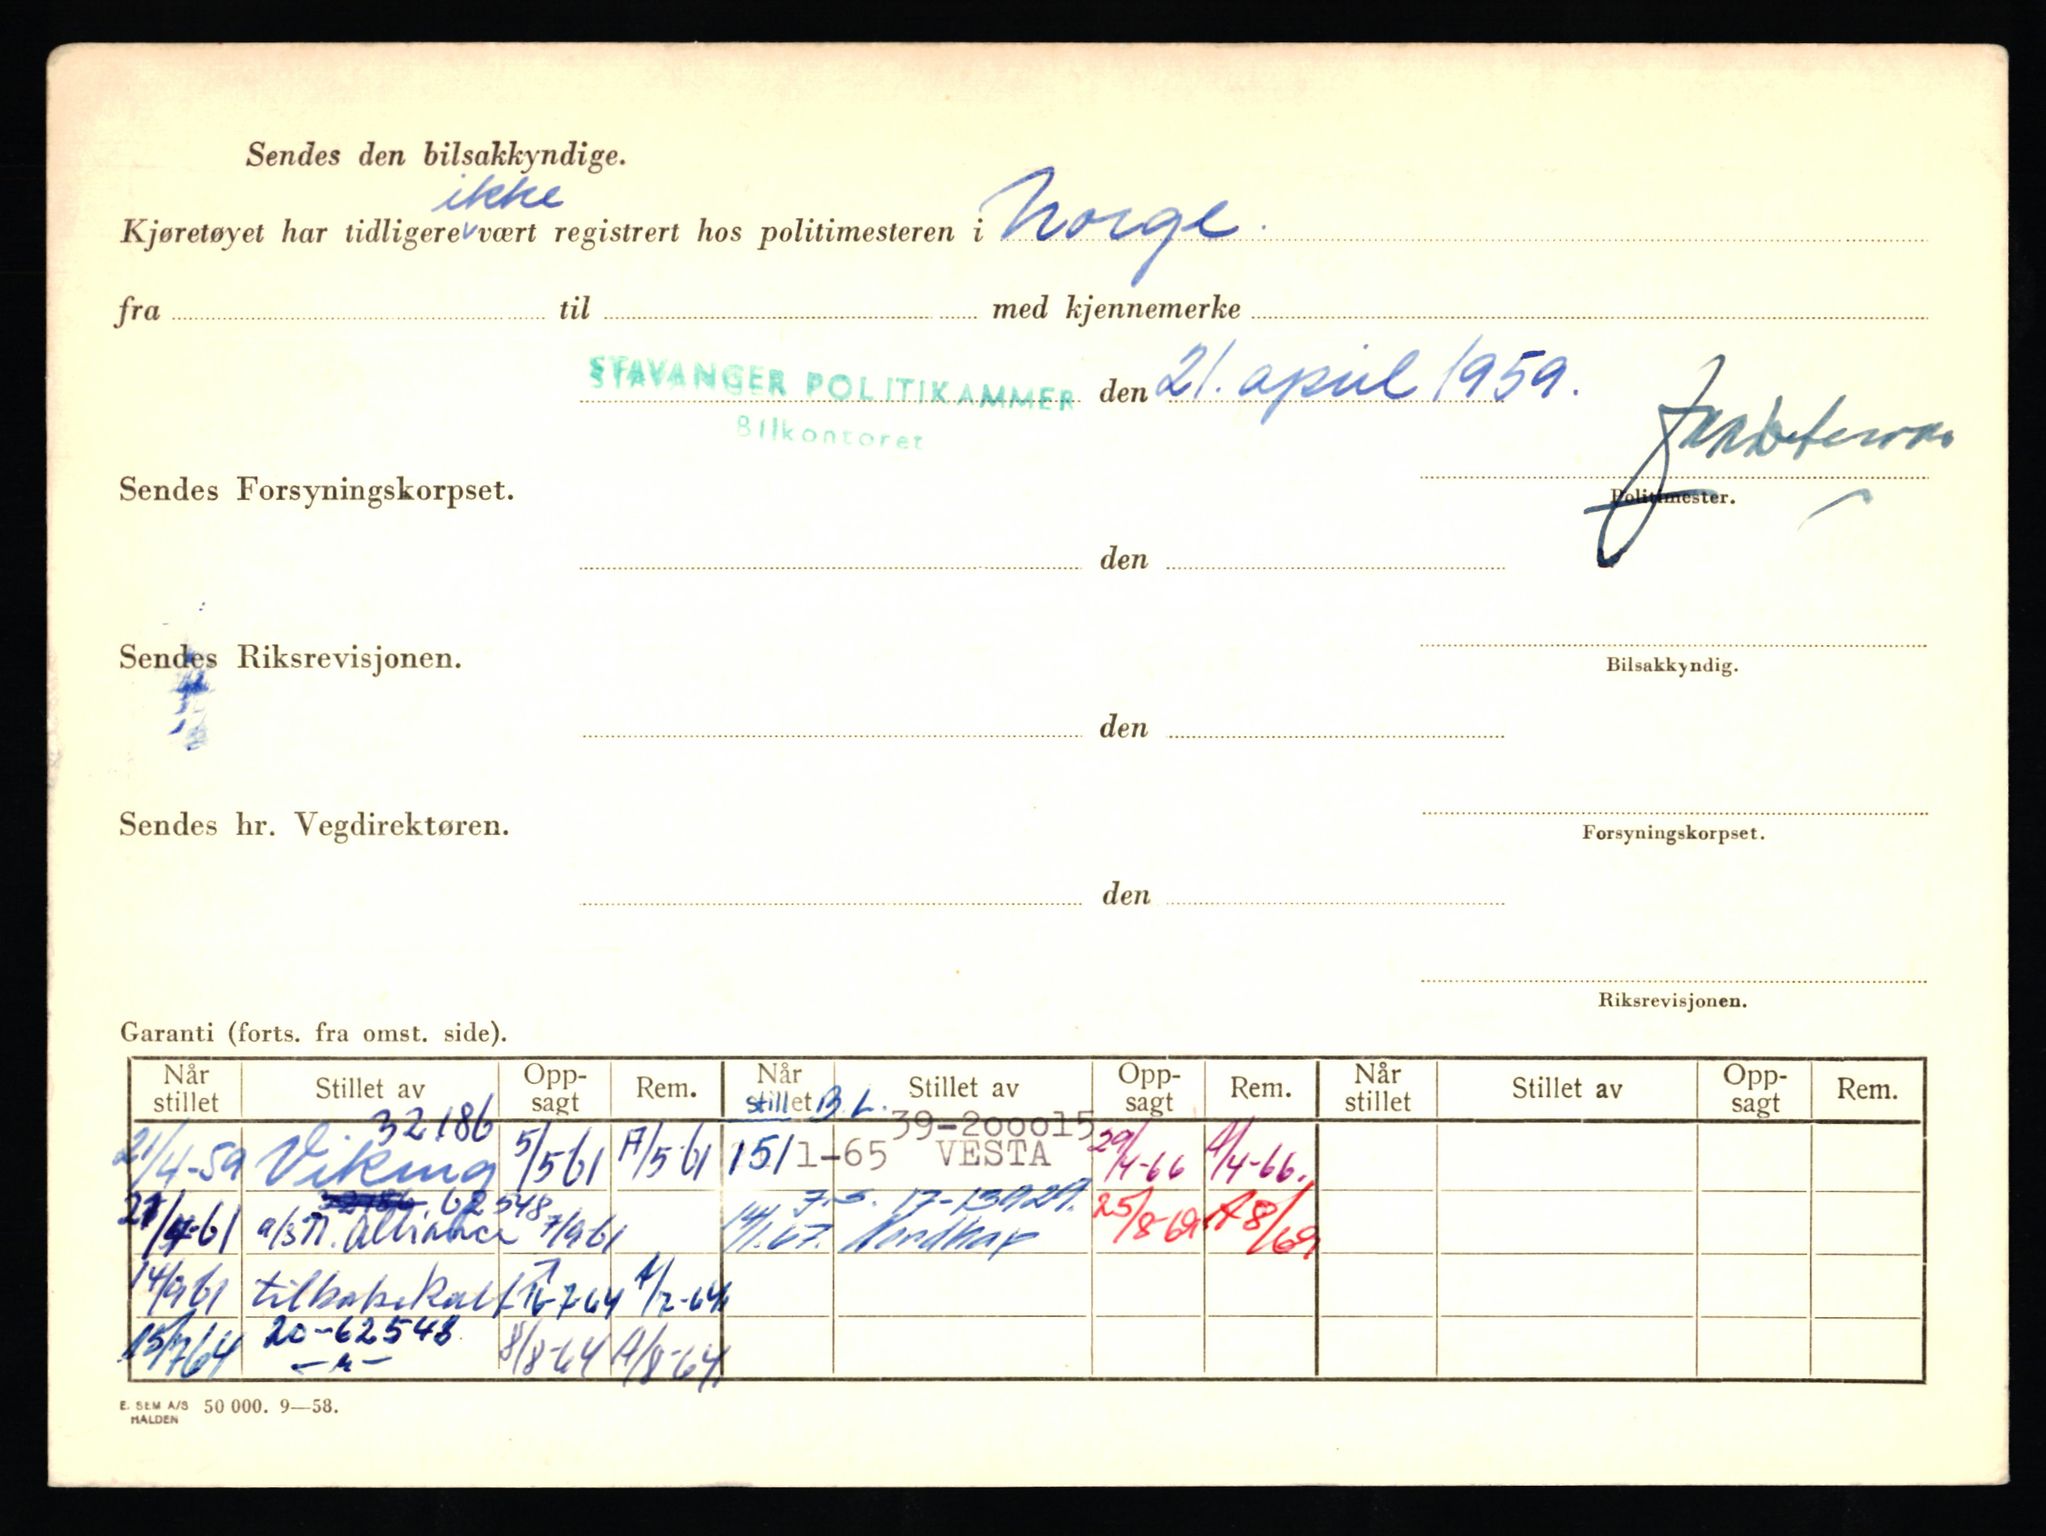 Sendes den bilsakkyndige.
ikke
Kjøretøyet har tidligere vært registrert hos politimesteren i Norge.
fra til med kjennemerke
STAVANGER POLITIKAMMER den 21. april 1959.
Bilkontoret
Sendes Forsyningskorpset.
Politimester.
den
Sendes Riksrevisjonen.
Bilsakkyndig.
den
Sendes hr. Vegdirektøren.
Forsyningskorpset.
den
Riksrevisjonen.
Garanti (forts. fra omst. side).
Når stillet Stillet av Opp-sagt Rem. Når stillet B.L. Stillet av Opp-sagt Rem. Når stillet Stillet av Opp-sagt Rem.
32186 39-200015
21/4-59 Viking 5/5 61 A/5-61 15/1-65 VESTA 29/4-66 A/4-66.
62548 17-13929.
a/s N. Alliance 7/9 61 14/1.67. Nordkap 25/8-69 A 8/69
14/9 61 16-7-64 A/7-64
20-62548
15/7 64 -"- 8/8-64 A/8-64
E. SEM A/S 50 000. 9—58.
HALDEN